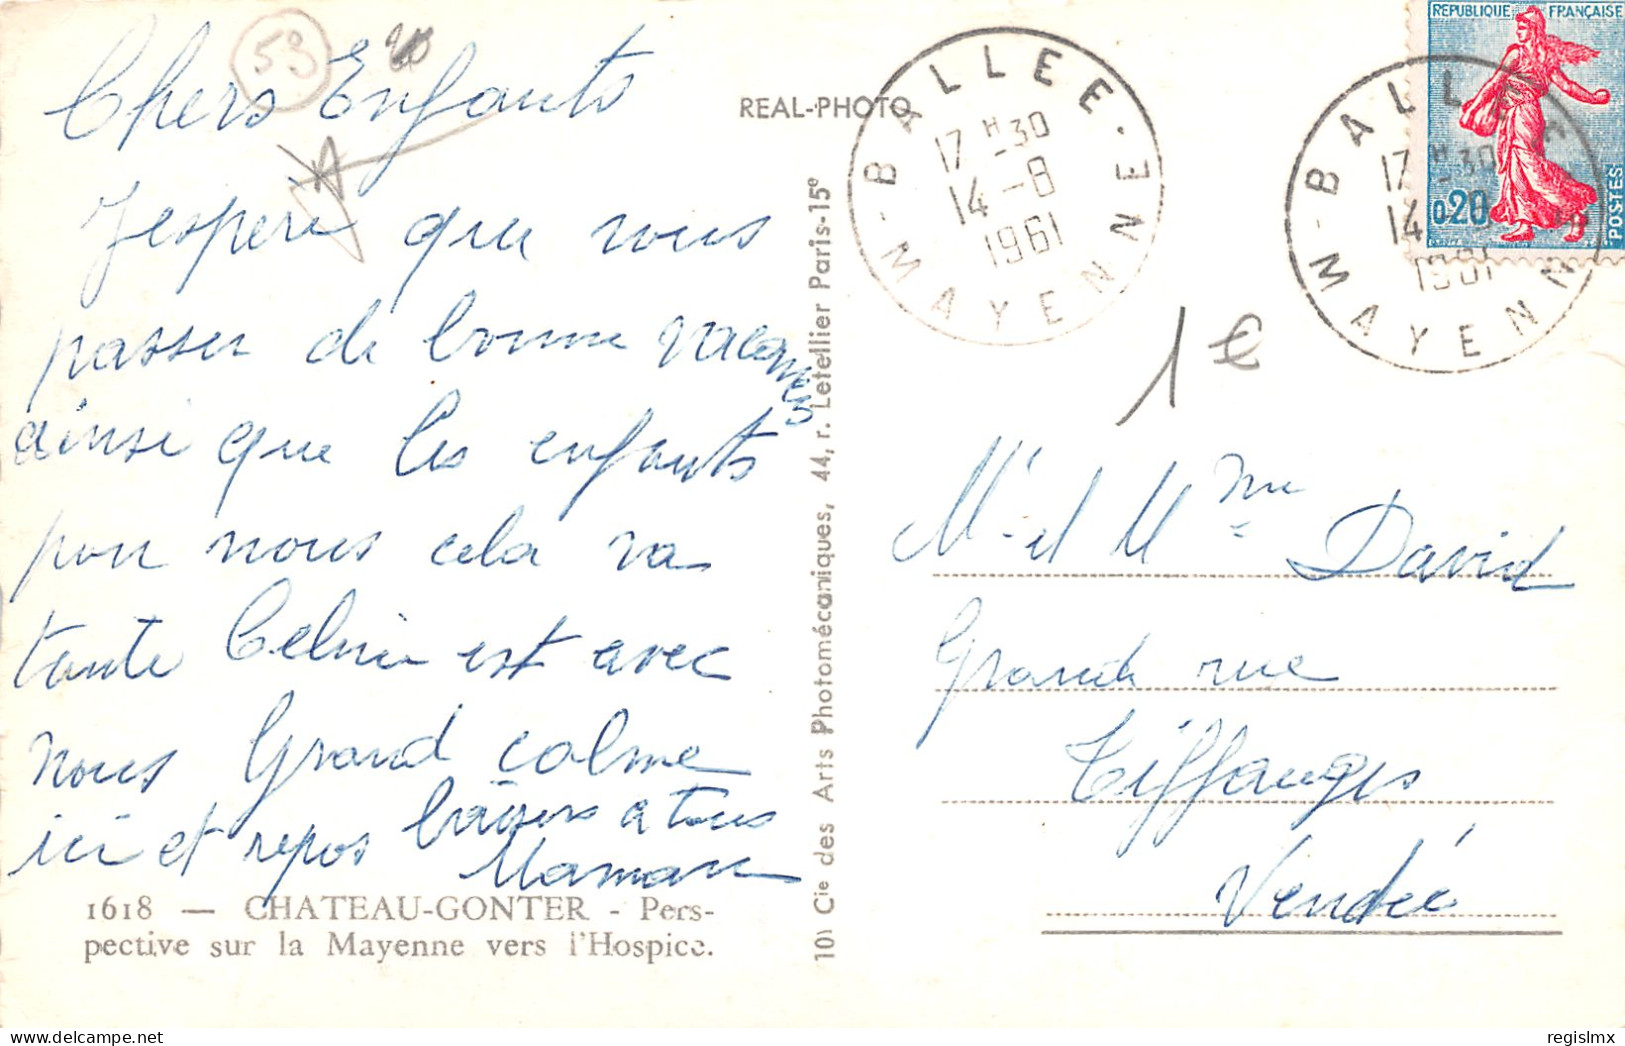 Chers Enfants
53
J'espere que vous
passer de bonne vacances
ainsi que les enfants
pour nous cela va
tante Celine est avec
nous Grand calme
ici et repos baisers a tous
Maman
1618 — CHATEAU-GONTER - Pers-
pective sur la Mayenne vers l'Hospice.
REAL-PHOTO
10) Cie des Arts Photomécaniques, 44, r. Letellier Paris-15e
BALLEE - MAYENNE
17 H 30
14 - 8
1961
BALLEE - MAYENNE
17 H 30
14
1961
REPUBLIQUE FRANÇAISE
0,20
POSTES
1 €
Mr et Mme David
Grande rue
Tiffauges
Vendée
regislmx